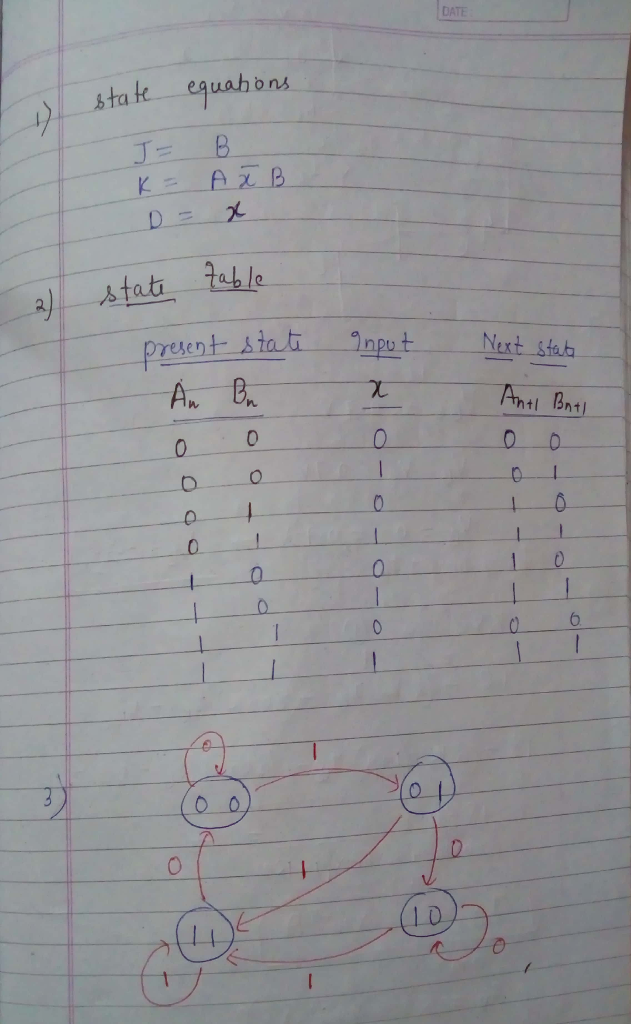 DATE
1) state equations
J = B
K = A x̄ B
D = x
2) state table
present state Input Next state
An Bn x An+1 Bn+1
0 0 0 0 0
0 0 1 0 1
0 1 0 1 0
0 1 1 1 1
1 0 0 1 0
1 0 1 1 1
1 1 0 0 0
1 1 1 1 1
3)
0 1
0 0 0 1
0 1 0
1 1 1 0
1 1 0